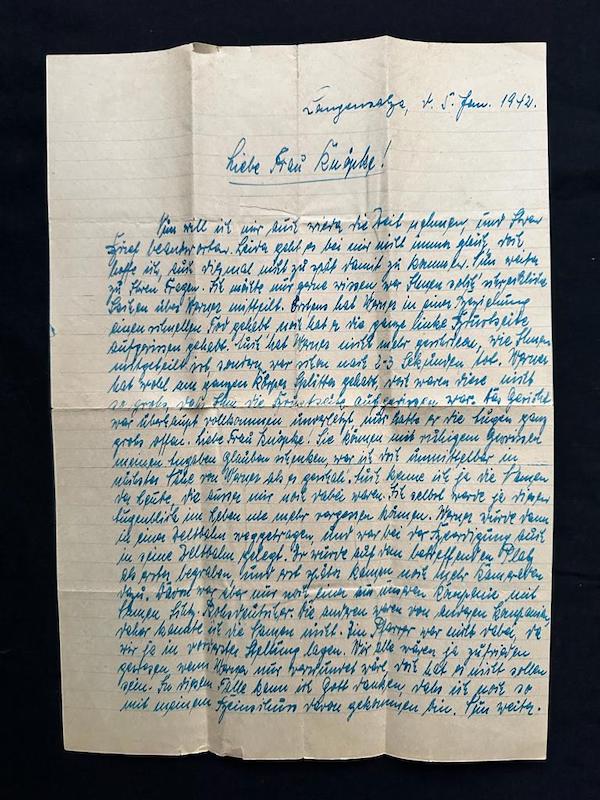 Langensalza, d. 5. Jan. 1942.
Liebe Frau Knöpke!
Nun will ich mir auch wieder die Zeit nehmen, und Ihren
Brief beantworten. Leider geht es bei mir nicht immer gleich, doch
hoffe ich, auch diesmal nicht zu spät damit zu kommen. Nun weiter
zu Ihren Fragen. Ich möchte nur gerne wissen wer Ihnen solch schreckliche
Sachen über Werner mitteilt. Erstens hat Werner in einer Beziehung
einen schnellen Tod gehabt, noch hat er die ganze linke Brustseite
aufgerissen gehabt. Auch hat Werner nicht mehr gesprochen, wie Ihnen
mitgeteilt ist sondern war schon nach 2-3 Sekunden tot. Werner
hat wohl am ganzen Körper Splitter gehabt, doch waren diese nicht
so groß, daß ihm die Brustseite aufgerissen war. Das Gesicht
war überhaupt vollkommen unverletzt, nur hatte er die Augen ganz
groß offen. Liebe Frau Knöpke. Sie können mit ruhigem Gewissen
meinen Angaben Glauben schenken, war ich doch unmittelbar in
nächster Nähe von Werner als es geschah. Auch kenne ich ja die Namen
der Leute, die ausser mir noch dabei waren. Ich selbst werde ja diesen
Augenblick im Leben nie mehr vergessen können. Werner wurde dann
in einer Zeltbahn weggetragen, und war bei der Beerdigung auch
in seine Zeltbahn gelegt. Er wurde auf dem betreffenden Platz
als erster begraben, und erst später kamen noch mehr Kameraden
dazu. Davon war aber nur noch einer aus unserer Kompanie mit
Namen, Die anderen waren von anderen Kompanien
daher kannte ich die Namen nicht. Ein Pfarrer war nicht dabei, da
wir ja in vorderster Stellung lagen. Wir alle wären ja zufrieden
gewesen wenn Werner nur verwundet wäre, doch hat es nicht sollen
sein. In diesem Falle kann ich Gott danken, dass ich noch so
mit meinem Beinschuss davon gekommen bin. Nun weiter.